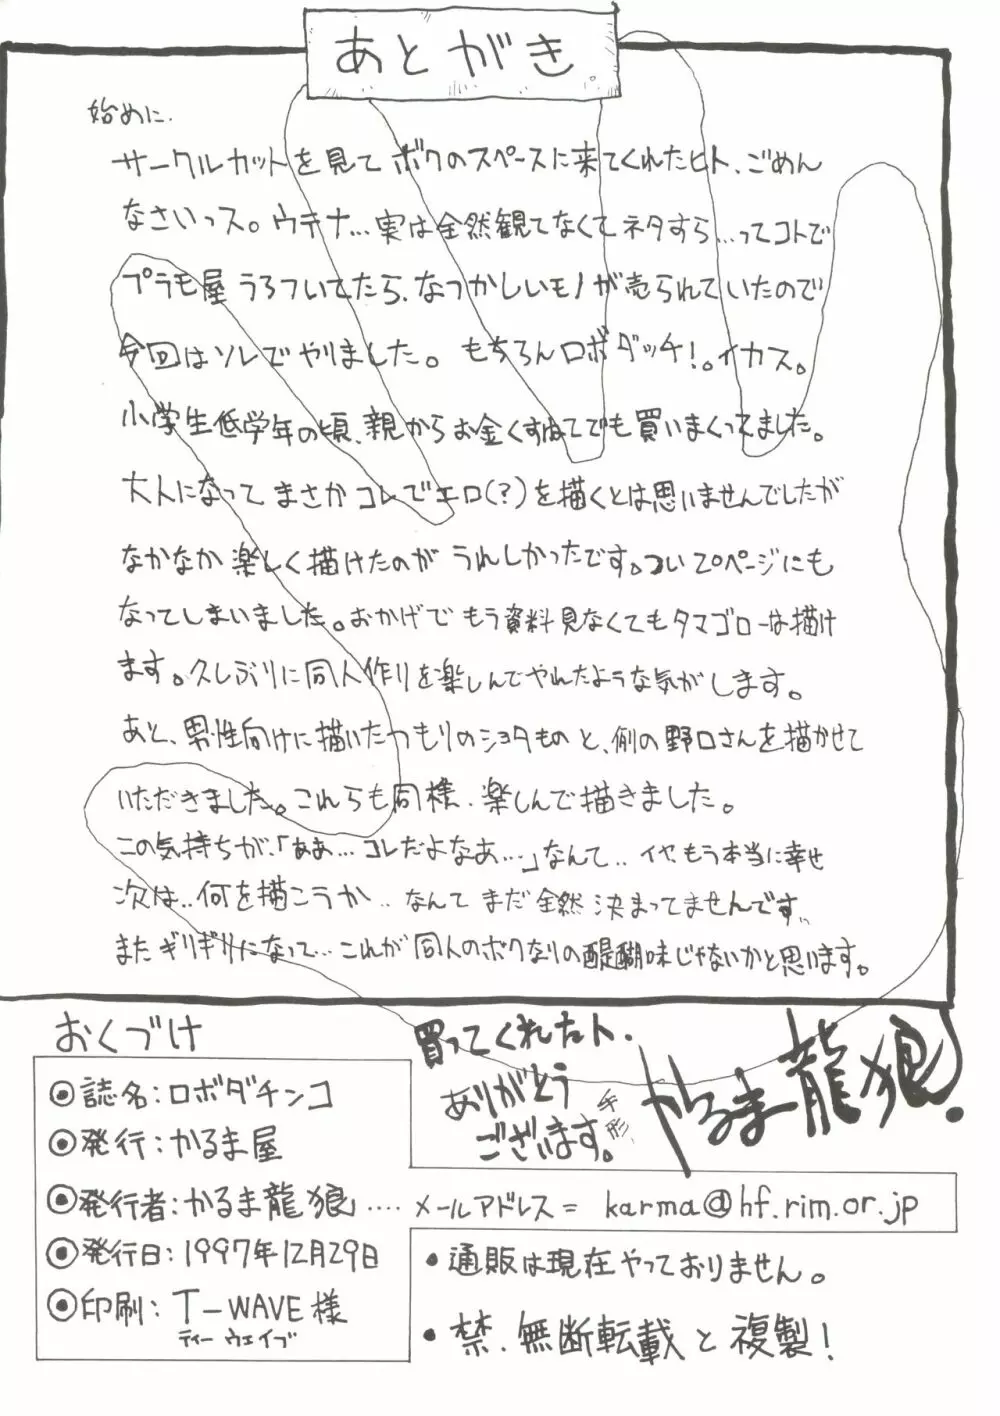 あとがき
始めに.
サークルカットを見て ボクのスペースに来てくれたヒト、ごめん
なさいっス。ウテナ…実は全然観てなくてネタすら…ってコトで
プラモ屋うろついてたら、なつかしいモノが売られていたので
今回はソレでやりました。もちろんロボダッチ!。イカス。
小学生低学年の頃、親からお金くすねてでも買いまくってました。
大人になって まさかコレでエロ(?)を描くとは思いませんでしたが
なかなか楽しく描けたのが うれしかったです。つい20ページにも
なってしまいました。おかげで もう資料見なくてもタマゴローは描け
ます。久しぶりに同人作りを楽しんでやれたような気がします。
あと、男性向けに描いたつもりのショタものと、例の野口さんを描かせて
いただきました。これらも同様、楽しんで描きました。
この気持ちが、「ああ…コレだよなあ…」なんて‥イヤもう本当に幸せ
次は‥何を描こうか‥なんて まだ全然決まってませんです‥
またギリギリになって…これが同人のボクなりの醍醐味じゃないかと思います。
おくづけ
◉誌名:ロボダチンコ
◉発行:かるま屋
◉発行者:かるま龍狼‥‥メールアドレス= karma@hf.rim.or.jp
◉発行日:1997年12月29日
◉印刷:T-WAVE様
ティーウェイブ
買ってくれたヒト、
ありがとう
ございます。
手形
かるま龍狼!
・通販は現在やっておりません。
・禁、無断転載と複製!